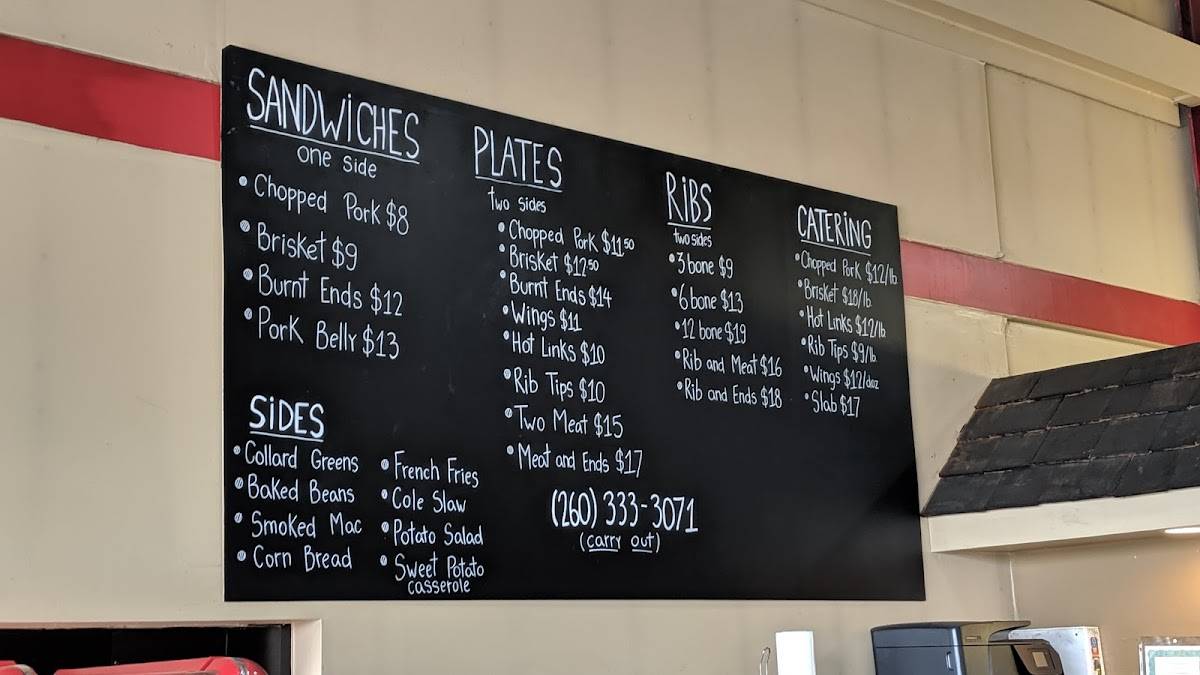 SANDWiCHES
one side
• Chopped Pork $8
• Brisket $9
• Burnt Ends $12
• Pork Belly $13
SiDES
• Collard Greens
• Baked Beans
• Smoked Mac
• Corn Bread
• French Fries
• Cole Slaw
• Potato Salad
• Sweet Potato
casserole
PLATES
two sides
• Chopped Pork $11 50
• Brisket $12 50
• Burnt Ends $14
• Wings $11
• Hot Links $10
• Rib Tips $10
• Two Meat $15
• Meat and Ends $17
(260) 333-3071
(carry out)
RiBS
two sides
• 3 bone $9
• 6 bone $13
• 12 bone $19
• Rib and Meat $16
• Rib and Ends $18
CATERiNG
• Chopped Pork $12/lb
• Brisket $18/lb
• Hot Links $12/lb
• Rib Tips $9/lb
• Wings $12/doz
• Slab $17